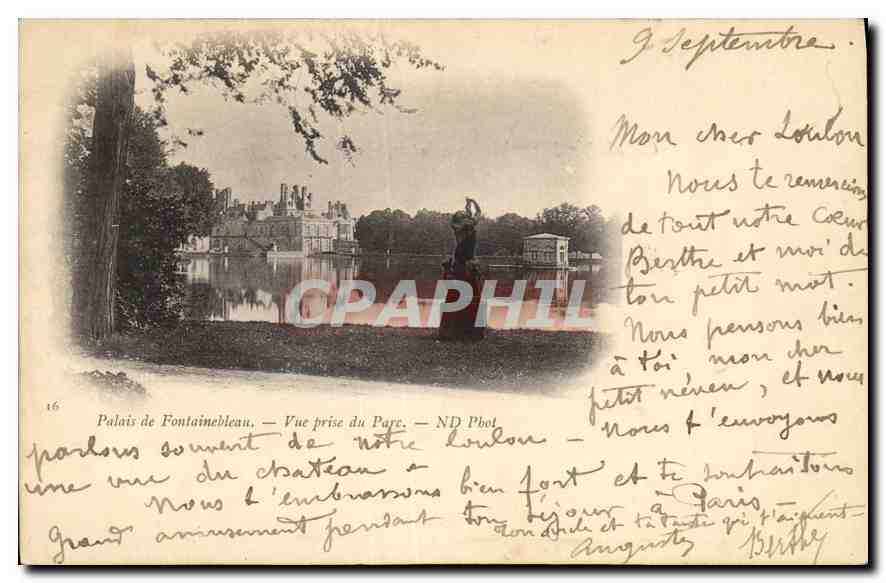 9 Septembre.
Mon cher Loulou
Nous te remercions
de tout notre Cœur
Berthe et moi de
ton petit mot.
Nous pensons bien
à toi, mon cher
petit neveu, et nous
parlons souvent de notre loulou - Nous t'envoyons
une vue du chateau -
Nous t'embrassons bien fort et te souhaitons
Grand amusement pendant ton séjour à Paris -
ton oncle et ta tante qui t'aiment
Auguste Berthe
16
Palais de Fontainebleau. — Vue prise du Parc. — ND Phot
CPARAMA.COM